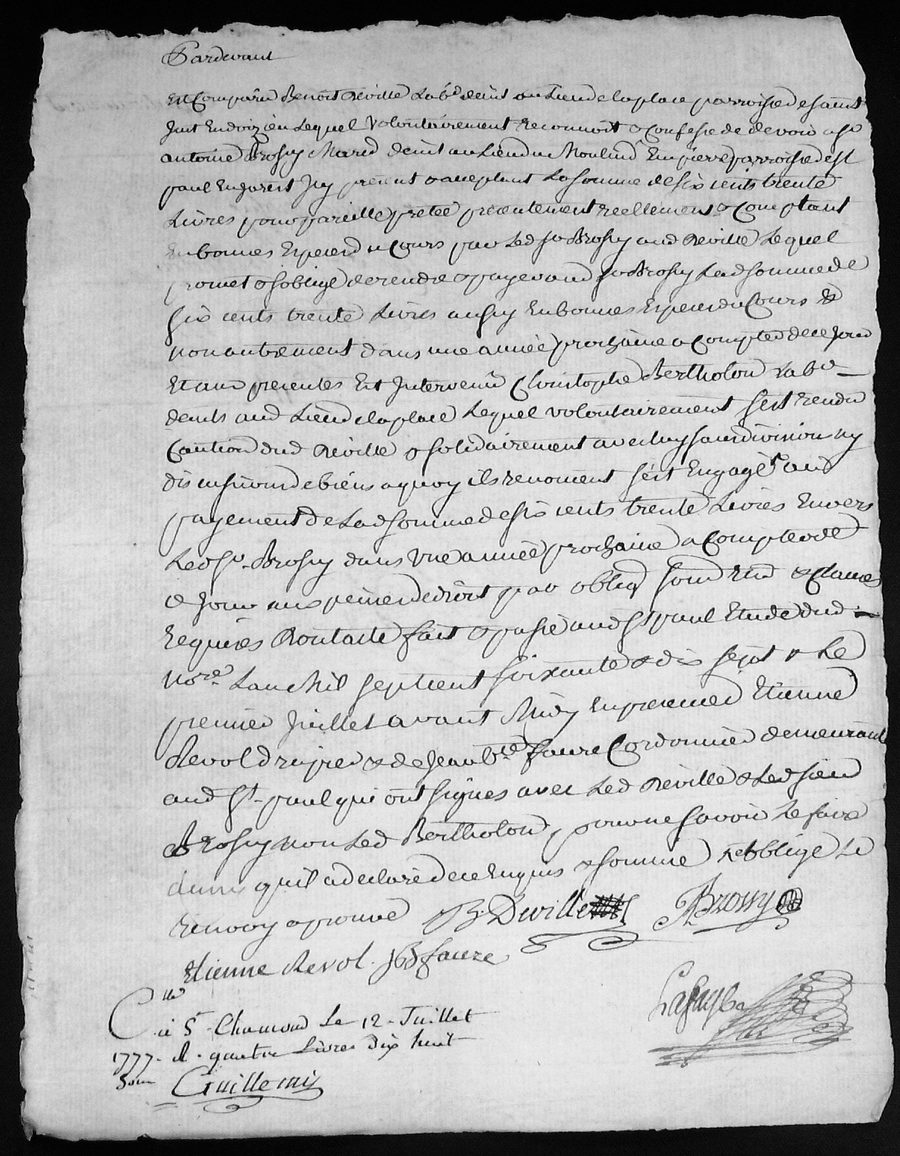 Pardevant
Est Comparu Benoit Deville Lab.r de üt au Lieu de la place parroisse de saint
Just En doizieu Lequel Volontairement reconnoit & Confesse de devoir a sr
antoine Brossy Mard de üt au Lieu du Moulin Empierre parroisse de st
paul En jarest Icy present & acceptant La somme de six cents trente
Livres pour pareille pretée presentement reellement & Comptant
En bonnes Especes du Cours par Led sr Brossy aud Deville Lequel
promet & soblige de rendre & payer aud sr Brossy Lad somme de
six cents trente Livres aussy En bonnes Especes du Cours &
non autrement dans une année prochaine a Compter de ce Jour
Et aux presentes Est Intervenu Christophe Bertholon Labr
de üts aud Lieu de la place Lequel volontairement sest rendu
Caution dud Deville & solidairement avec luy sans division ny
discussion de biens a quoy ils renoncent sest Engagé au
payement de Lad somme de six cents trente Livres Envers
Led sr. Brossy dans une année prochaine a Compter de
ce Jour aux peines de droit par oblig soum Ren & Clauses
Requises dont acte fait & passé aud st paul Etude dud
nore. Lan Mil sept cent soixante & dix sept & Le
premier Juillet avant Midy En presence d Etienne
Revol drapier & de Jean bte faure Cordonnier demeurants
aud st. paul qui ont signés avec Led Deville & Led sieur
Brossy non Led Bertholon pour ne savoir Le faire
ainsi quil a declaré de ce Enquis & sommé Le
renvoy aprouvé B Deville ABrossy
Etienne Revol. JB faure
Clle à St Chamond Le 12 Juillet
1777. R. quatre Livres dix huit
sous Guillemin